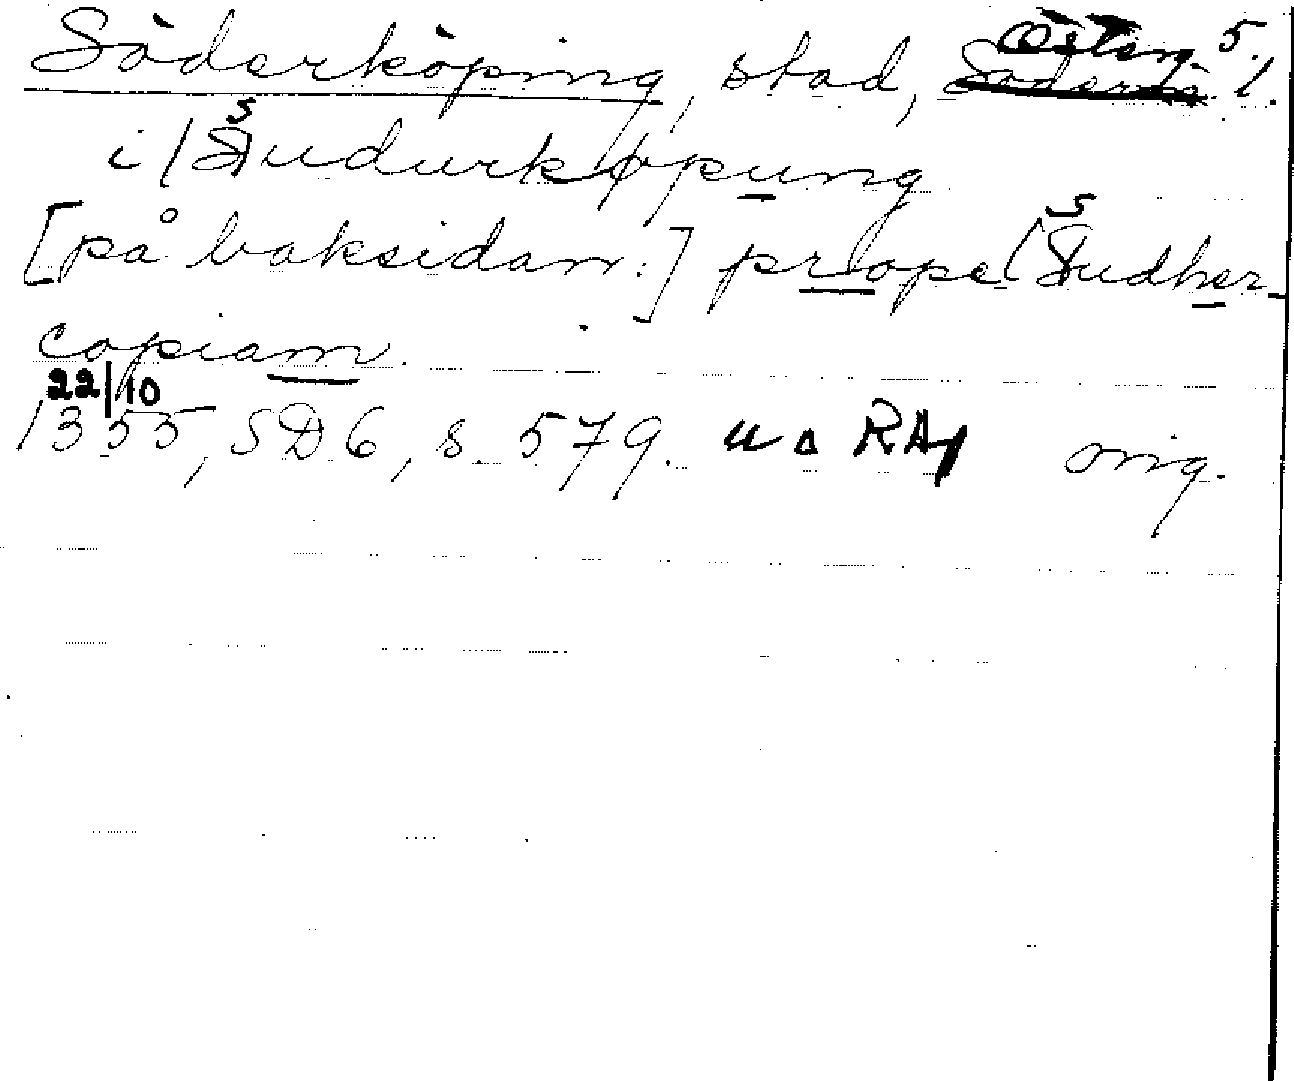 Söderköping, stad, Österg. 5. l.
i sudurkøpung
[på baksidan:] prope sudher-
copiam.
22/10
1355, SD 6, s. 579. u a RA, orig.